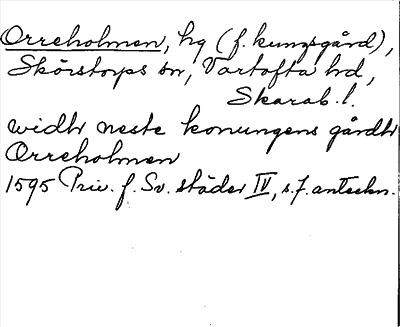 Orreholmen, hg (f. kungsgård),
Skörstorps sn, Vartofta hd,
Skarab. l.
widh neste konungens gårdh
Orreholmen
1595 Priv. f. Sv. städer IV, s. 7. anteckn.